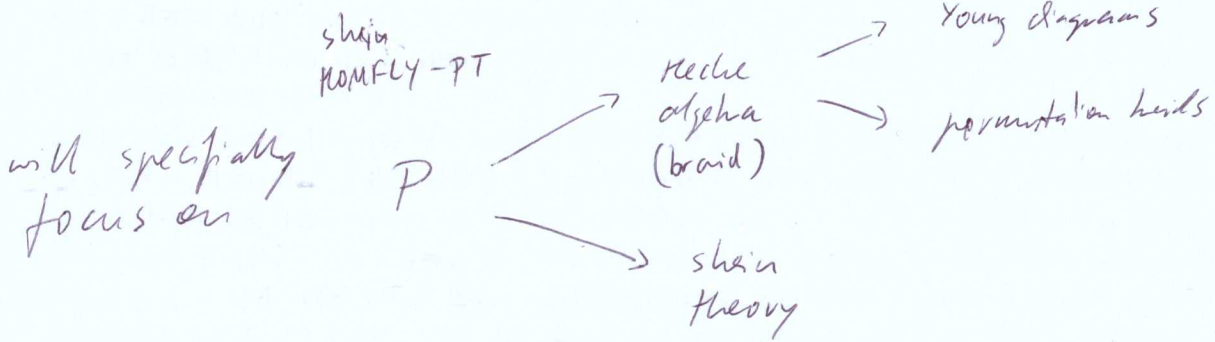 skein
HOMFLY-PT
will specifially
focus on
P
Hecke
algebra
(braid)
Young diagrams
permutation braids
skein
theory